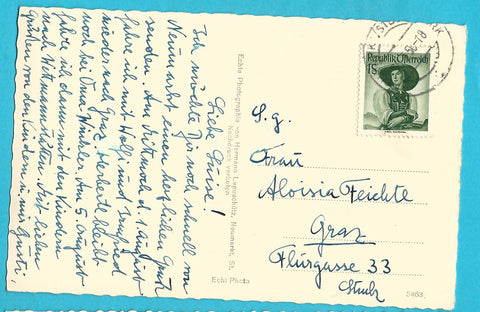 Liebe Luise!
Ich möchte Dir noch schnell von
Neumarkt einen herzlichen Gruß
senden. Am Mittwoch d. 1. August
fahre ich mit Wolfi und
wieder nach Graz. Herberte bleibt
noch bei Oma Winkler. Am 5. August
fahre ich dann mit den Kindern
nach Mit lieben
Grüßen von den Kindern u. mir Gusti.
Echte Photographie von Hermann Laposchütz, Neumarkt, St.
Nachdruck verboten
Echt Photo
Republik Österreich
1 S
S. g.
Frau
Aloisia Feichte
Graz
Flurgasse 33
5463